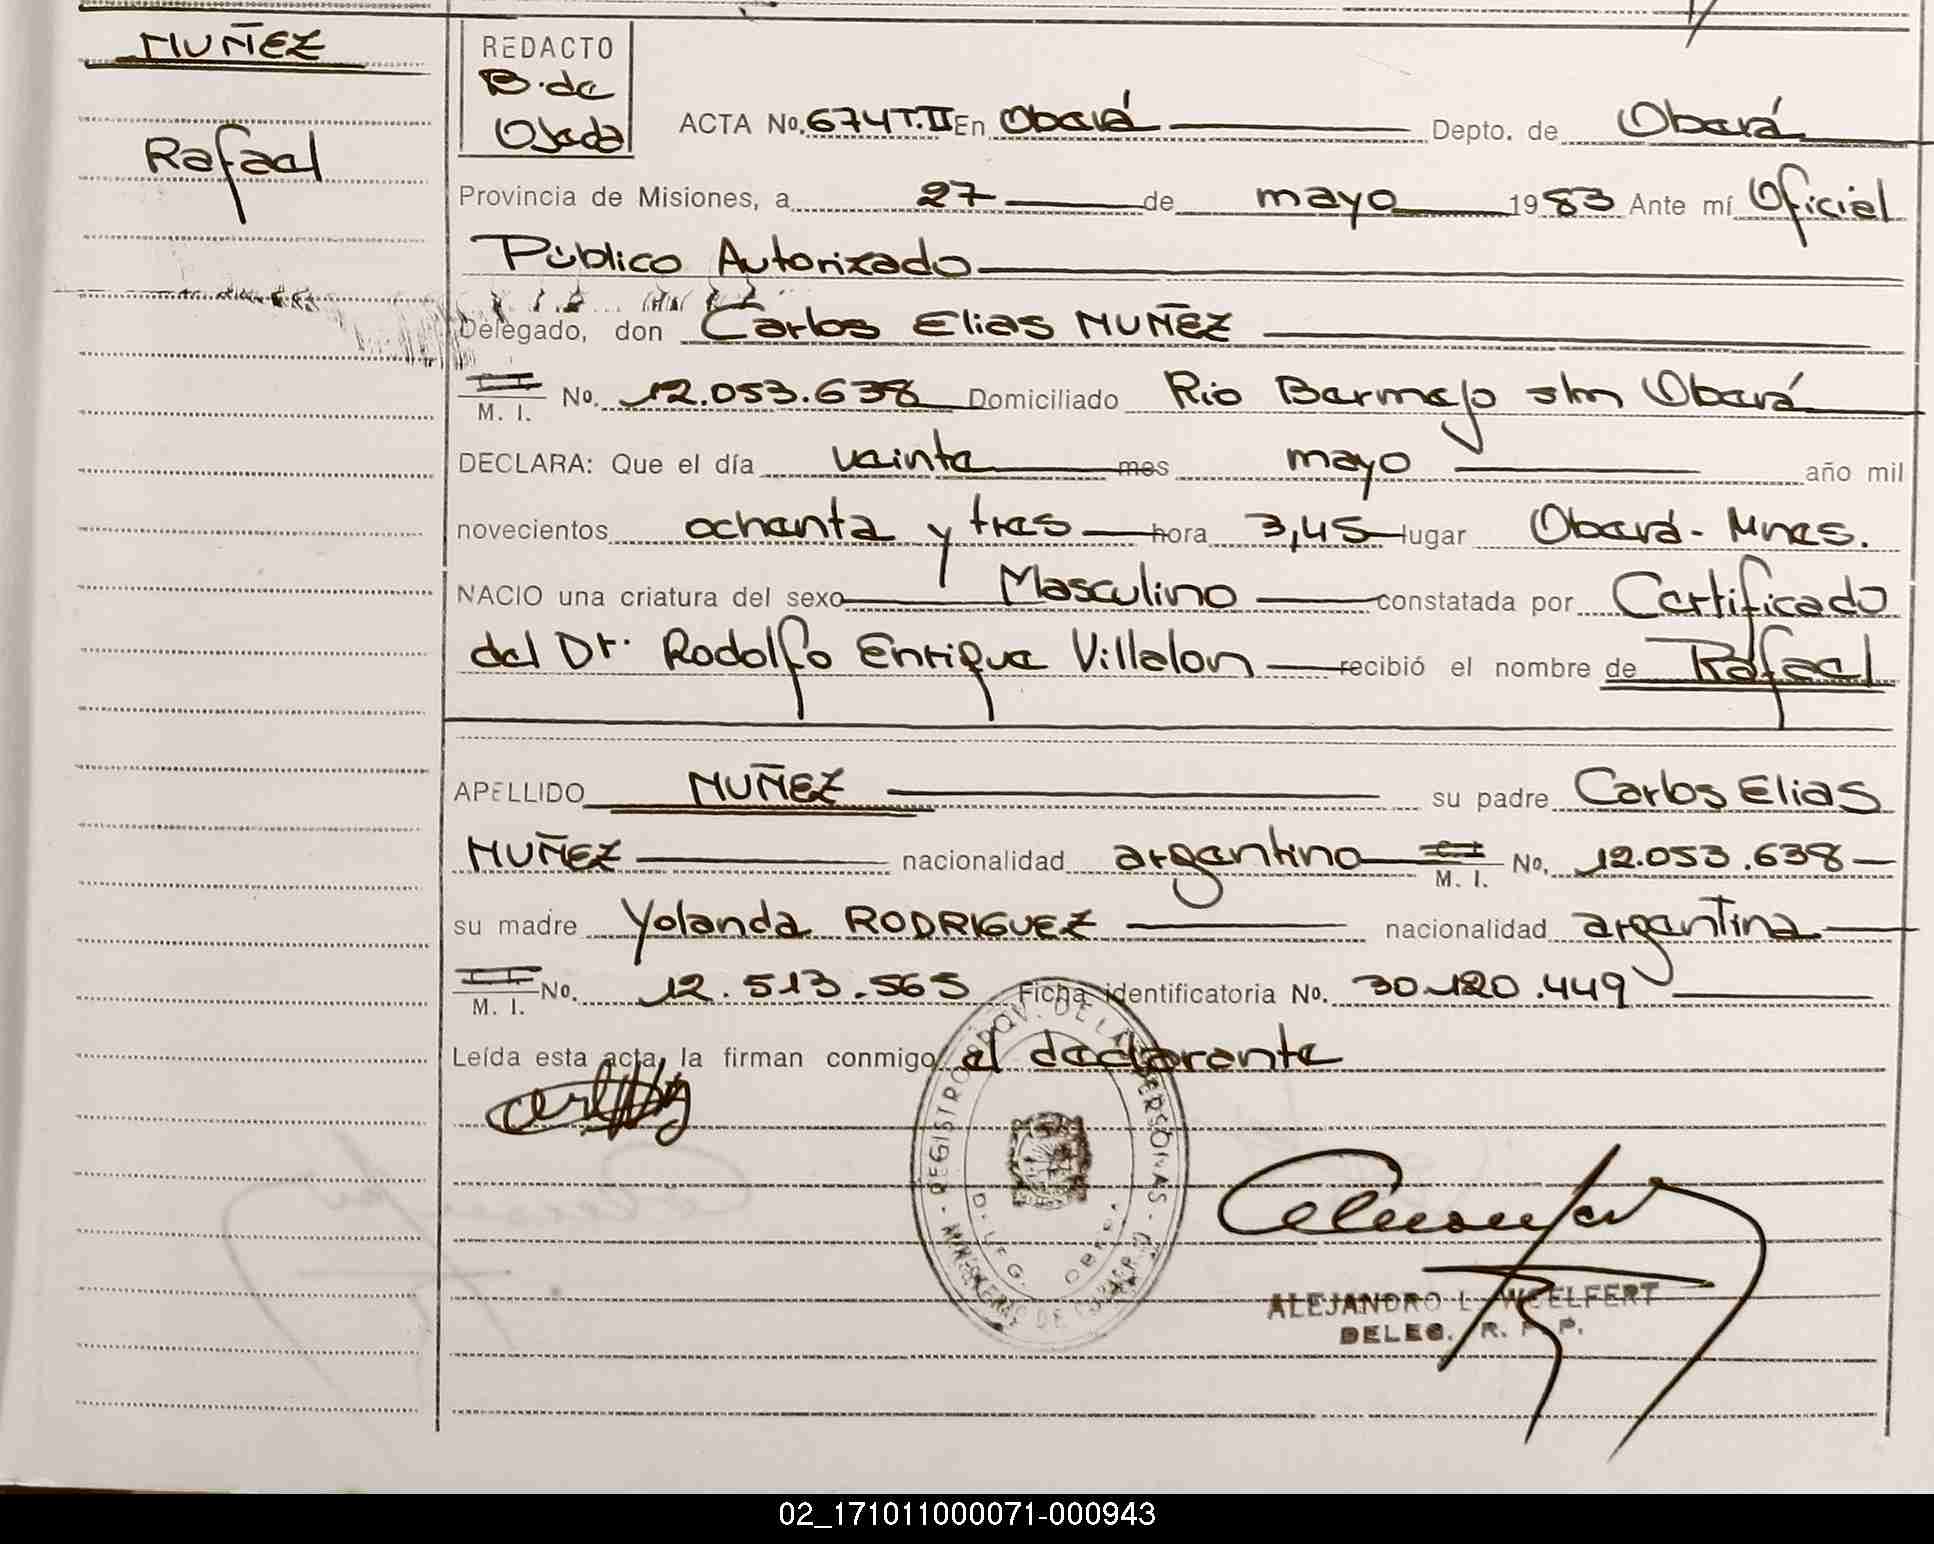 MUÑEZ
Rafael
REDACTO
B. de
Ojeda
ACTA No. 674 T.II En Oberá Depto. de Oberá
Provincia de Misiones, a 27 de mayo 1983 Ante mí Oficial
Público Autorizado
Delegado, don Carlos Elias MUÑEZ
M. I. No. 12.053.638 Domiciliado Rio Bermejo s/n Oberá
DECLARA: Que el día veinte mes mayo año mil
novecientos ochenta y tres hora 3,45 lugar Oberá - Mnes.
NACIO una criatura del sexo Masculino constatada por Certificado
del Dr. Rodolfo Enrique Villalon recibió el nombre de Rafael
APELLIDO MUÑEZ su padre Carlos Elias
MUÑEZ nacionalidad argentino M. I. No. 12.053.638
su madre Yolanda RODRIGUEZ nacionalidad argentina
M. I. No. 12.513.565 Ficha identificatoria No. 30.120.449
Leída esta acta, la firman conmigo el declarante
REGISTRO PROV. DE LAS PERSONAS
DELEG. OBERA
ALEJANDRO L. WOELFERT
DELEG. R. P. P.
02_171011000071-000943